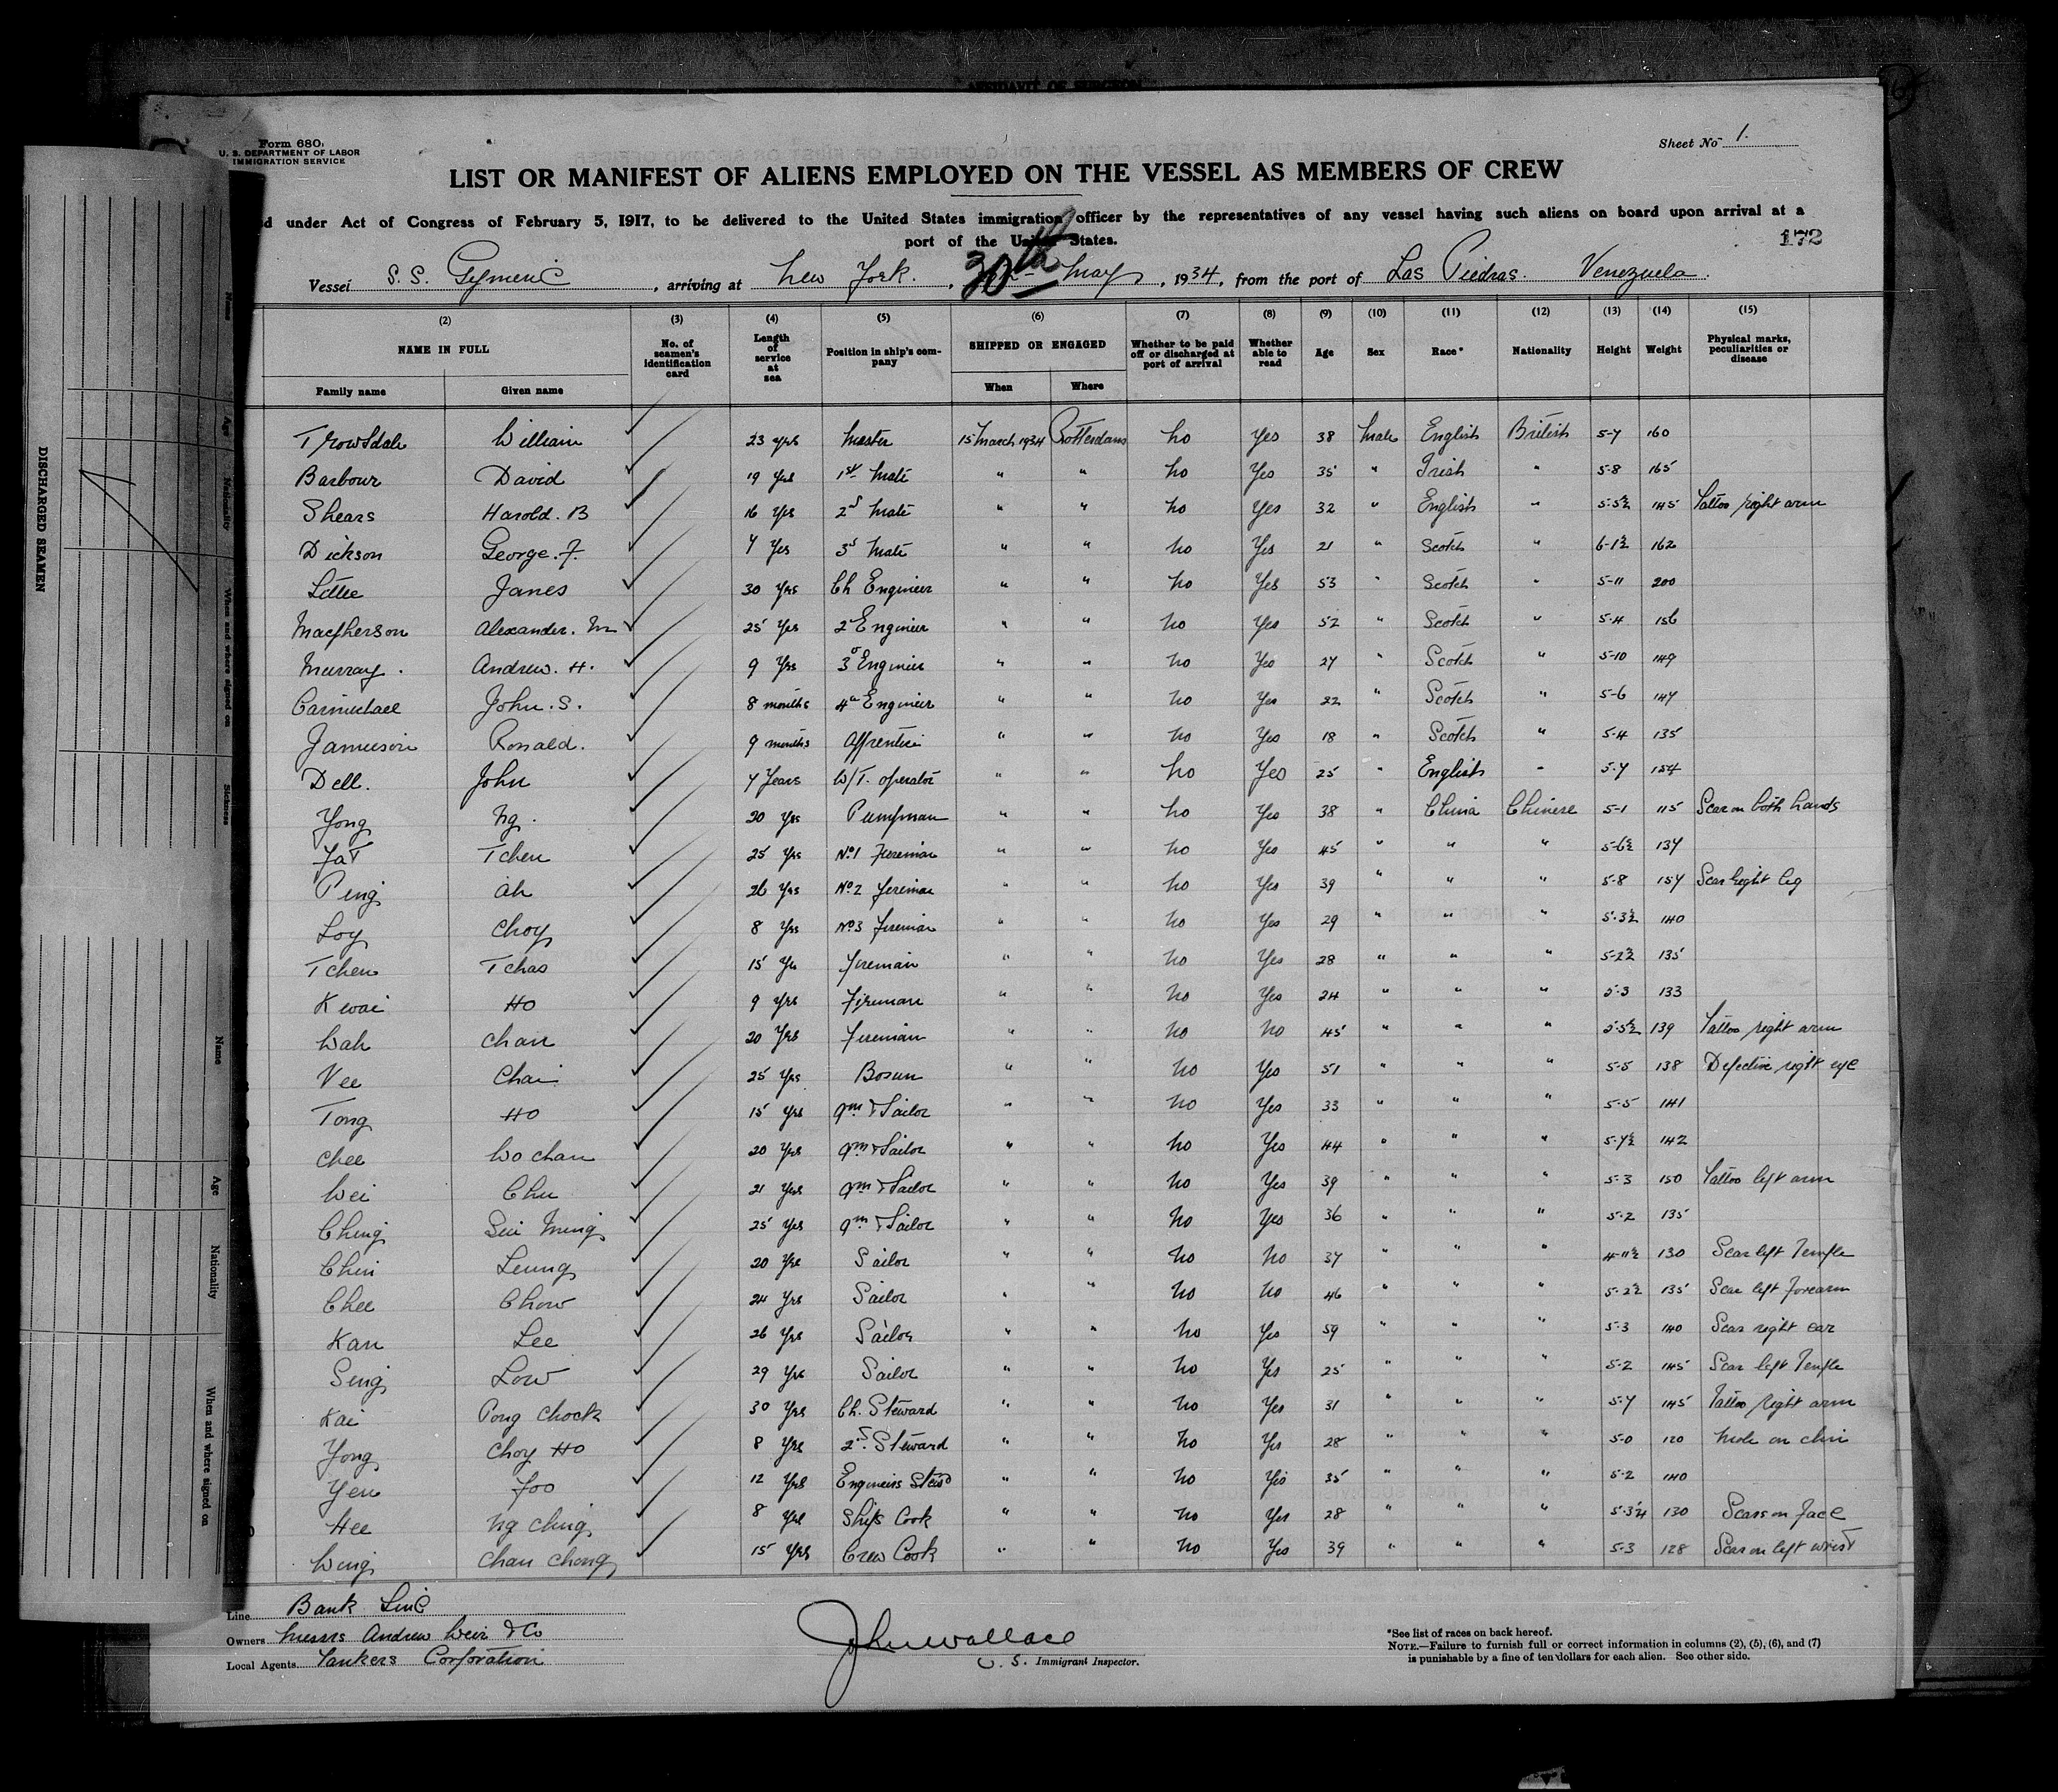 Form 680
U. S. DEPARTMENT OF LABOR
IMMIGRATION SERVICE
Sheet No 1.
LIST OR MANIFEST OF ALIENS EMPLOYED ON THE VESSEL AS MEMBERS OF CREW
under Act of Congress of February 5, 1917, to be delivered to the United States immigration officer by the representatives of any vessel having such aliens on board upon arrival at a
port of the United States.
172
Vessel S.S. Gymeric, arriving at New York., 30th May, 1934, from the port of Las Piedras. Venezuela.
(2) (3) (4) (5) (6) (7) (8) (9) (10) (11) (12) (13) (14) (15)
NAME IN FULL No. of seamen's identification card Length of service at sea Position in ship's company SHIPPED OR ENGAGED Whether to be paid off or discharged at port of arrival Whether able to read Age Sex Race* Nationality Height Weight Physical marks, peculiarities or disease
Family name Given name When Where
Trowsdale William 23 yrs Master 15 March 1934 Rotterdam No Yes 38 Male English British 5-7 160
Barbour David 19 Yrs 1st Mate " " No Yes 35 " Irish " 5-8 165
Shears Harold. B 16 Yrs 2d Mate " " No Yes 32 " English " 5-5½ 145 Tattoo right arm
Dickson George. F. 7 Yrs 3d Mate " " No Yes 21 " Scotch " 6-1½ 162
Little James 30 Yrs Ch Engineer " " No Yes 53 " Scotch " 5-11 200
Macpherson Alexander. M 25 Yrs 2 Engineer " " No Yes 52 " Scotch " 5-4 156
Murray. Andrew. H. 9 Yrs 3d Engineer " " No Yes 27 " Scotch " 5-10 149
Carmichael John. S. 8 months 4th Engineer " " No Yes 22 " Scotch " 5-6 147
Jamieson Ronald. 9 months Apprentice " " No Yes 18 " Scotch " 5-4 135
Dell. John 7 Years W/T. operator " " No Yes 25 " English " 5-7 154
Yong Ng. 20 Yrs Pumpman " " No Yes 38 " China Chinese 5-1 115 Scar on both hands
Fat Tchen 25 Yrs No1 Fireman " " No Yes 45 " " " 5-6½ 137
Peng ah 26 Yrs No2 fireman " " No Yes 39 " " " 5-8 157 Scar Right leg
Loy Choy 8 Yrs No3 Fireman " " No Yes 29 " " " 5-3½ 140
Tchen Tchao 15 Yrs fireman " " No Yes 28 " " " 5-2½ 135
Kwai Ho 9 Yrs Fireman " " No Yes 24 " " " 5-3 133
Wah Chan 20 Yrs fireman " " No No 45 " " " 5-5½ 139 Tattoo right arm
Vee Chai 25 Yrs Bosun " " No Yes 51 " " " 5-5 138 Defective right eye
Tong Ho 15 Yrs Qm & Sailor " " No Yes 33 " " " 5-5 141
Chee Wo Chan 20 Yrs Qm & Sailor " " No Yes 44 " " " 5-7½ 142
Wei Chu 21 Yrs Qm & Sailor " " No Yes 39 " " " 5-3 150 Tattoo left arm
Ching Sui Ming 25 Yrs Qm & Sailor " " No Yes 36 " " " 5-2 135
Chin Leung 20 Yrs Sailor " " No No 37 " " " 4-11½ 130 Scar left Temple
Chee Chow 24 Yrs Sailor " " No No 46 " " " 5-2½ 135 Scar left Forearm
Kan Lee 26 Yrs Sailor " " No Yes 59 " " " 5-3 140 Scar right ear
Sing Low 29 Yrs Sailor " " No Yes 25 " " " 5-2 145 Scar left Temple
Kai Pong Chock 30 Yrs Ch. Steward " " No Yes 31 " " " 5-7 145 Tattoo right arm
Yong Choy Ho 8 Yrs 2d. Steward " " No Yes 28 " " " 5-0 120 Mole on chin
Yen Foo 12 Yrs Engineers Stewd " " No Yes 35 " " " 5-2 140
Hee Ng Ching 8 Yrs Ships Cook " " No Yes 28 " " " 5-3¼ 130 Scars on Face
Wing Chan Chong 15 Yrs Crew Cook " " No Yes 39 " " " 5-3 128 Scar on left wrist
Line Bank Line
Owners Messrs Andrew Weir & Co
Local Agents Tankers Corporation
John Wallace
U. S. Immigrant Inspector.
*See list of races on back hereof.
NOTE.—Failure to furnish full or correct information in columns (2), (5), (6), and (7)
is punishable by a fine of ten dollars for each alien. See other side.
DISCHARGED SEAMEN
Name
Age
Nationality
When and where signed on
Sickness
Name
Age
Nationality
When and where signed on